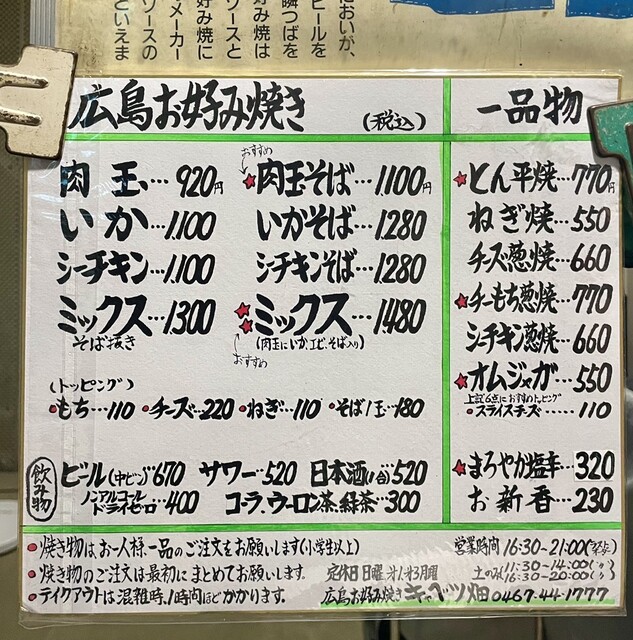 においが、
ビールを
瞬つばを
み焼は
ソースと
好み焼に
メーカー
ソースの
といえま
広島お好み焼き (税込)
肉玉…920円
いか…1.100
シーチキン…1.100
ミックス…1300
そば抜き
おすすめ
★肉玉そば…1.100円
いかそば…1.280
シチキンそば…1.280
★★ミックス…1480
(肉玉にいか、エビ、そば入り)
おすすめ
(トッピング)
•もち…110 •チーズ…220 •ねぎ…110 •そば1玉…180
飲み物
ビール(中ビン)670 サワー…520 日本酒(1合)520
ノンアルコール
ドライゼロ…400 コーラ、ウーロン茶、緑茶…300
一品物
★とん平焼…770円
ねぎ焼…550
チーズ葱焼…660
★チーもち葱焼…770
シーチキン葱焼…660
★オムジャガ…550
上記6点におすすめトッピング
•スライスチーズ……110
★まろやか塩辛…320
お新香…230
•焼き物は、お一人様、一品のご注文をお願いします(小学生以上)
•焼き物のご注文は最初にまとめてお願いします。
•テイクアウトは混雑時、1時間ほどかかります。
営業時間 16:30~21:00
定休日 日曜、第1第3月曜
土のみ 11:30-14:00
16:30-20:00
広島お好み焼き キャベツ畑 0467-44-1777